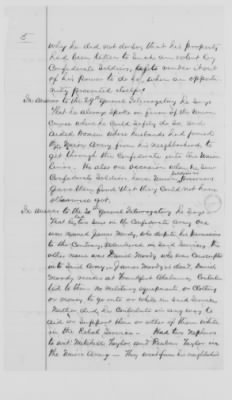 5
why he did not do so, that his property
had been taken to such an extent by
Confederate Soldiers, as to render it out
of his power to do so, when an opportu
nity presented itself
In answer to the 29th General Interrogatory he says
That he always spoke in favor of the Union
Cause where he could safely do so and
aided Women whose husbands had joined
the Union Army from his neighborhood to
get through the Confederate into the Union
lines. He also on one occasion when he saw
Confederate Soldiers have Union Prisoners
gave them food that they could not have
otherwise got.
In answer to the 30th General Interrogatory he says
That he had two Sons in the Confederate Army One
was named James Moody, who despite his permission
to the Contrary, Volunteered in said Service. The
other was Daniel Moody who was Conscripted
into said Army. James Moody is dead, Daniel
Moody resides at Alabama
to them no Military equipments or Clothing
or money to go into or while in said Service.
Neither did he Contribute in any way to
aid or Support them or either of them while
in the Rebel Service. Had two Nephews
to wit Mitchell Taylor and Reuben Taylor in
the Union Army. They went from his neighborhood